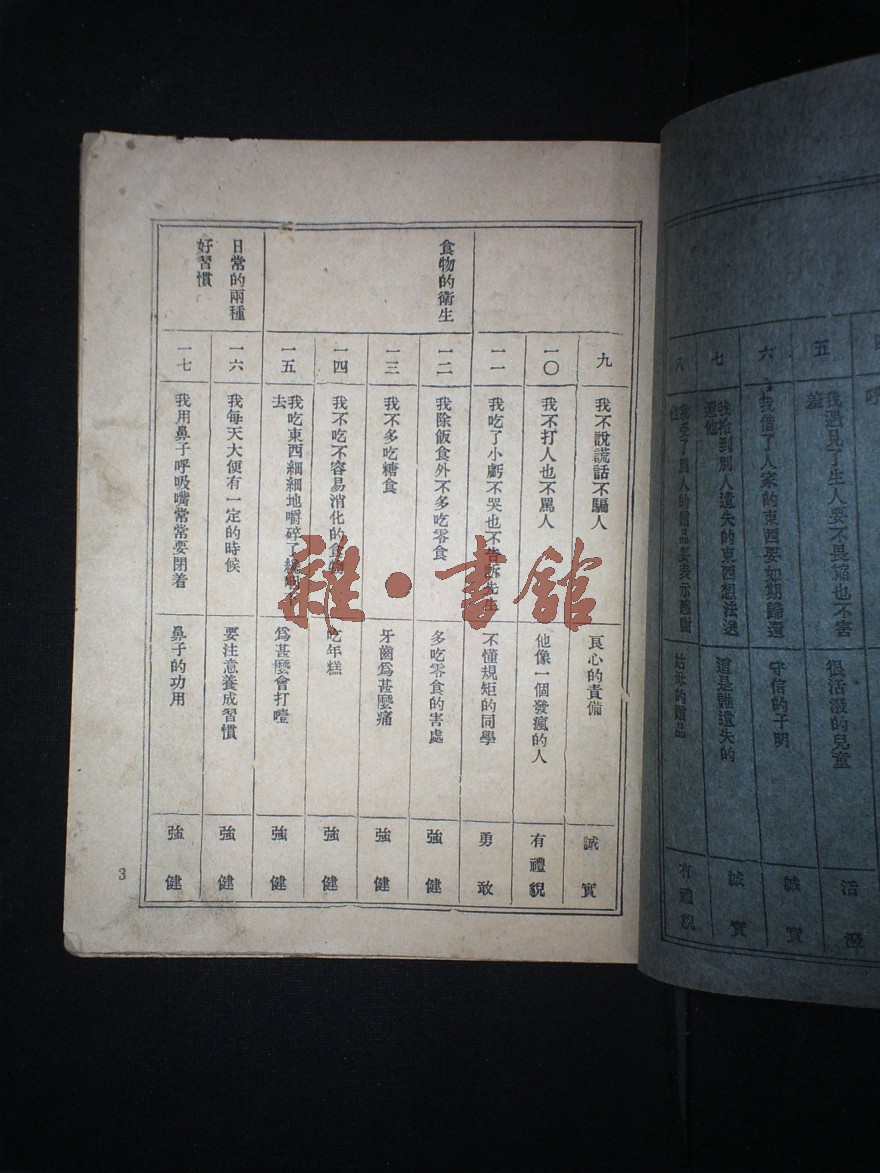 五
我遇見了生人要不畏縮也不害
羞
很活潑的兒童
活潑
六
我借了人家的東西要如期歸還
守信的子明
誠實
七
我拾到別人遺失的東西想法送
還他
這是誰遺失的
誠實
八
我受了別人的贈品要表示感謝
姑母的贈品
有禮貌
九
我不說謊話不騙人
良心的責備
誠實
一〇
我不打人也不罵人
他像一個發瘋的人
有禮貌
一一
我吃了小虧不哭也不告訴先生
不懂規矩的同學
勇敢
食物的衛生
一二
我除飯食外不多吃零食
多吃零食的害處
強健
一三
我不多吃糖食
牙齒爲甚麼痛
強健
一四
我不吃不容易消化的食物
吃年糕
強健
一五
我吃東西細細地嚼碎了纔嚥下
去
爲甚麼會打噎
強健
日常的兩種
好習慣
一六
我每天大便有一定的時候
要注意養成習慣
強健
一七
我用鼻子呼吸嘴常常要閉着
鼻子的功用
強健
3
雜·書館